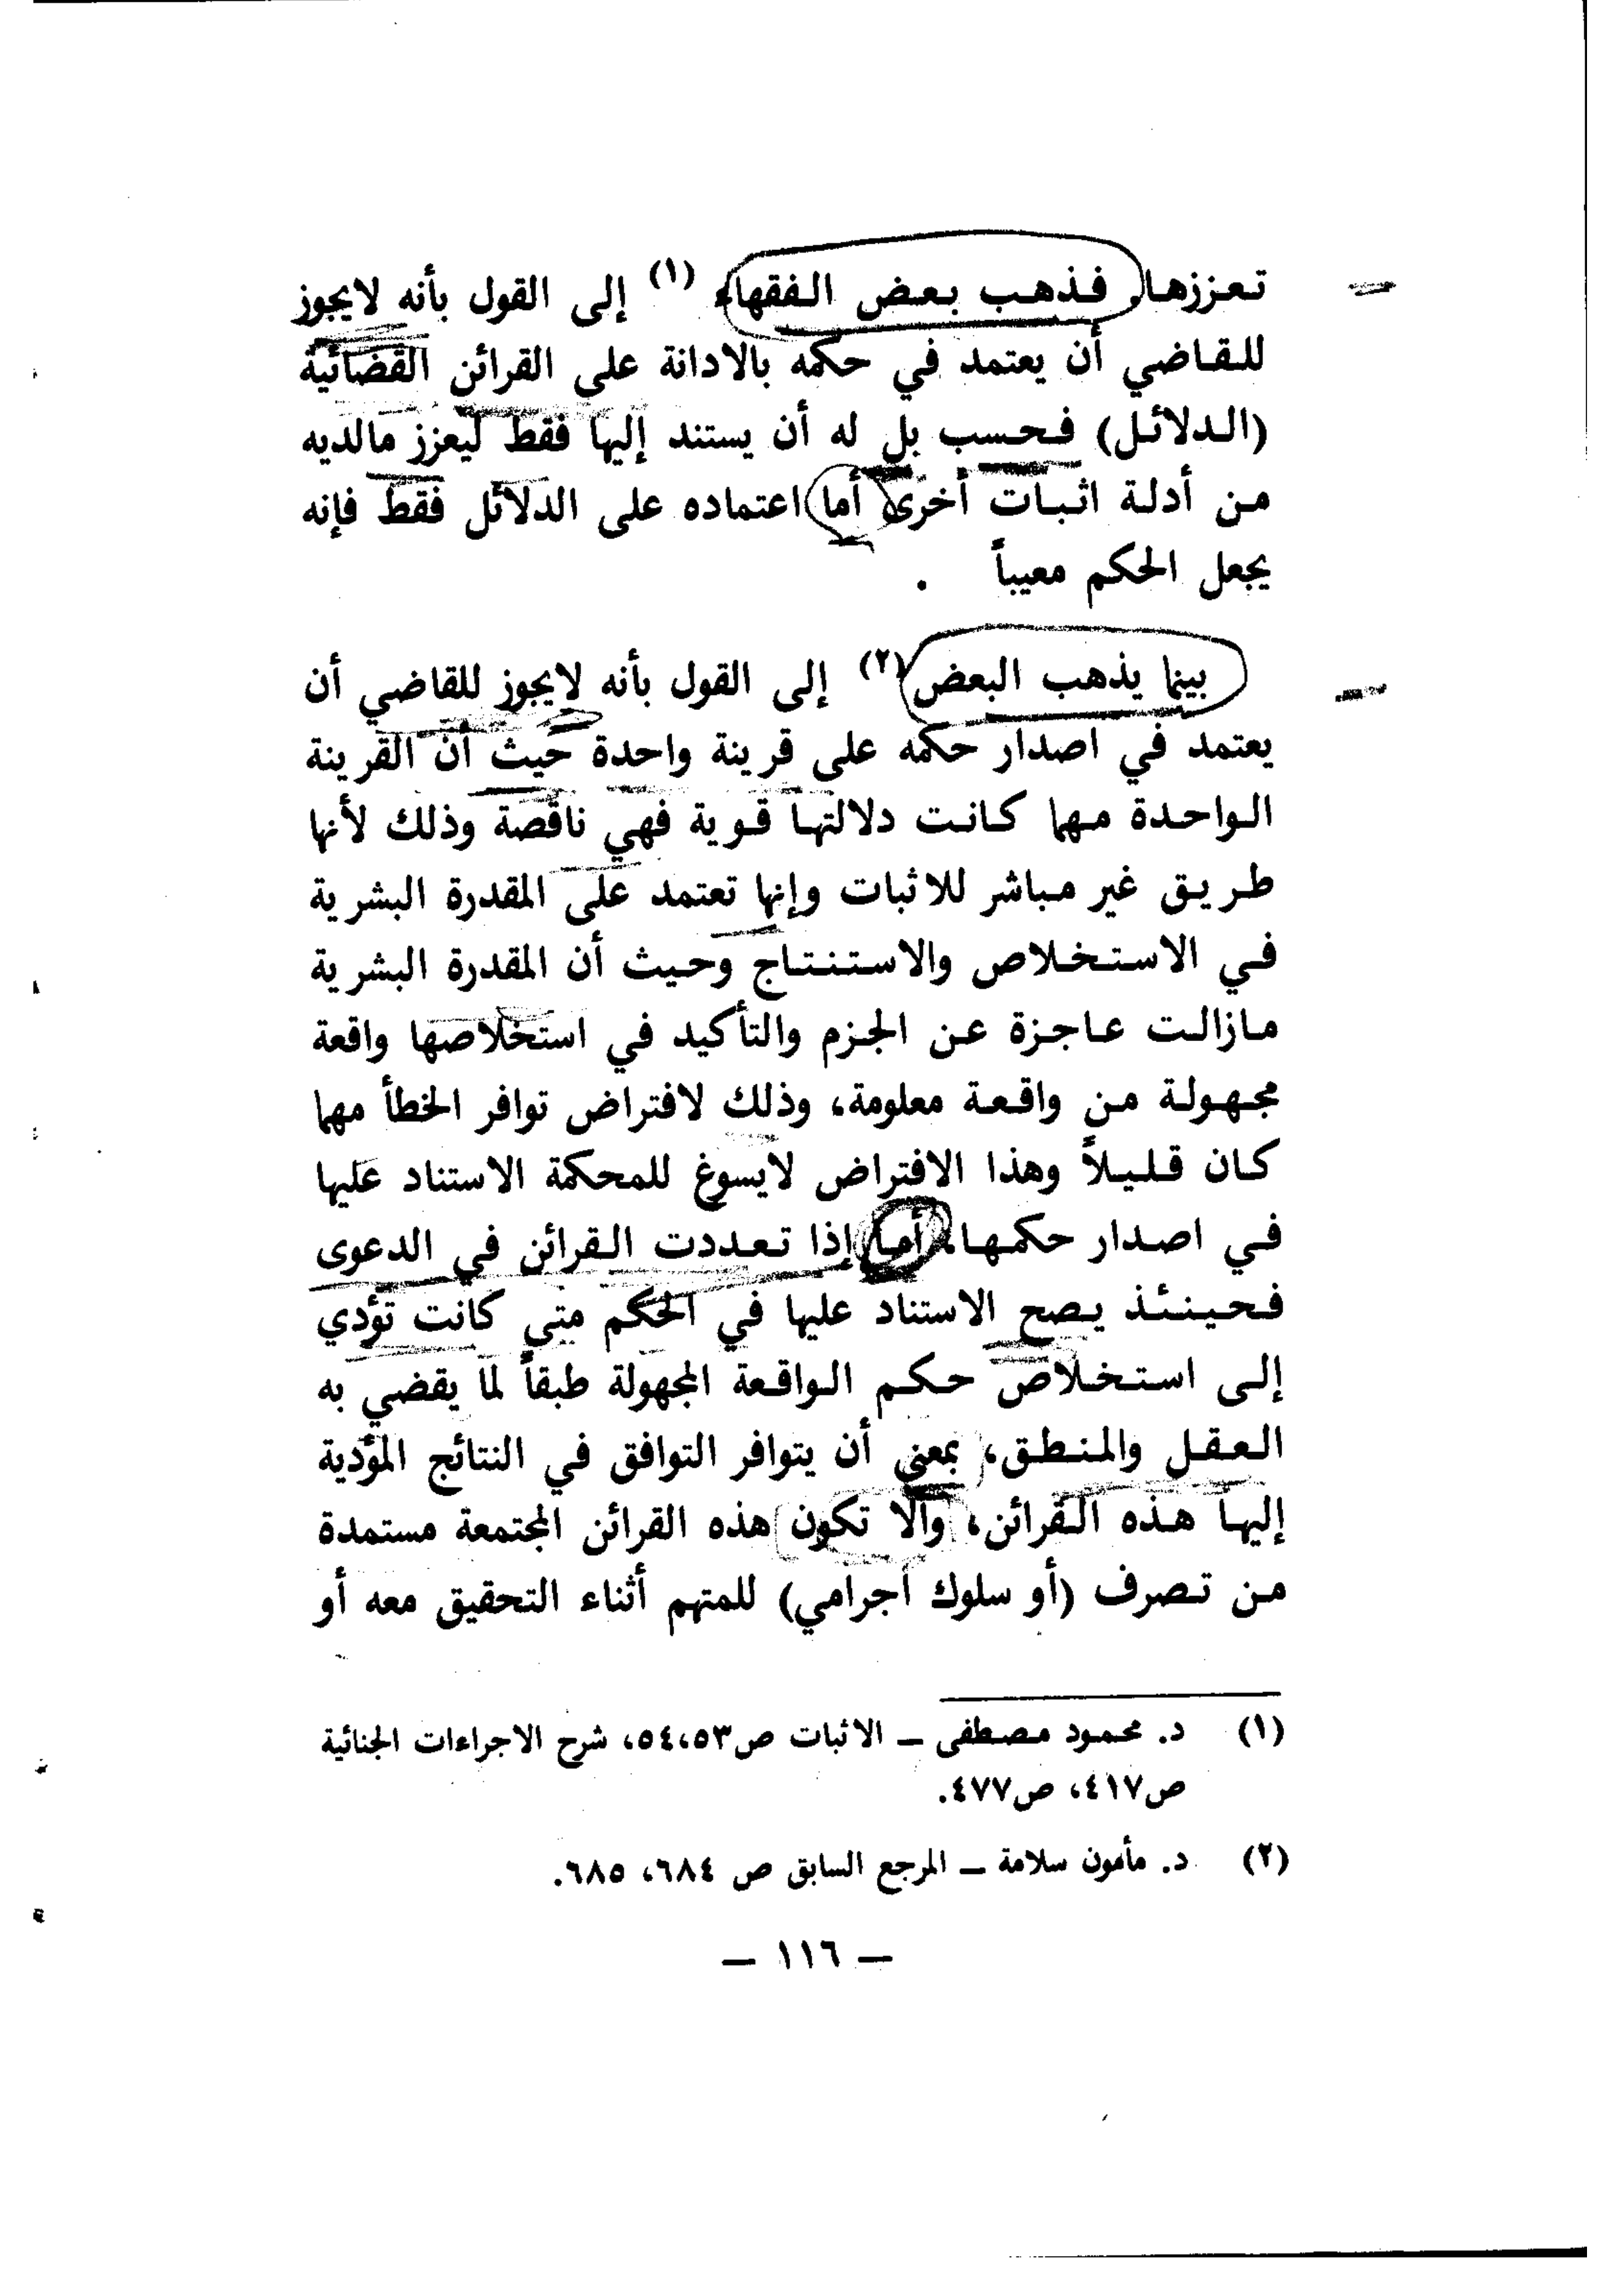 تعززها. فذهب بعض الفقهاء (١) إلى القول بأنه لايجوز
للقاضي أن يعتمد في حكمه بالادانة على القرائن القضائية
(الدلائل) فحسب بل له أن يستند إليها فقط ليعزز مالديه
من أدلة اثبات أخرى أما اعتماده على الدلائل فقط فإنه
يجعل الحكم معيباً .
بينما يذهب البعض (٢) إلى القول بأنه لايجوز للقاضي أن
يعتمد في اصدار حكمه على قرينة واحدة حيث أن القرينة
الواحدة مهما كانت دلالتها قوية فهي ناقصة وذلك لأنها
طريق غير مباشر للاثبات وإنها تعتمد على المقدرة البشرية
في الاستخلاص والاستنتاج وحيث أن المقدرة البشرية
مازالت عاجزة عن الجزم والتأكيد في استخلاصها واقعة
مجهولة من واقعة معلومة، وذلك لافتراض توافر الخطأ مهما
كان قليلاً وهذا الافتراض لايسوغ للمحكمة الاستناد عليها
في اصدار حكمها. أما إذا تعددت القرائن في الدعوى
فحينئذ يصح الاستناد عليها في الحكم متى كانت تؤدي
إلى استخلاص حكم الواقعة المجهولة طبقاً لما يقضي به
العقل والمنطق، بمعنى أن يتوافر التوافق في النتائج المؤدية
إليها هذه القرائن، وألا تكون هذه القرائن المجتمعة مستمدة
من تصرف (أو سلوك أجرامي) للمتهم أثناء التحقيق معه أو
(١) د. محمود مصطفى ــ الاثبات ص٥٤،٥٣، شرح الاجراءات الجنائية
ص٤١٧، ص٤٧٧.
(٢) د. مأمون سلامة ــ المرجع السابق ص ٦٨٤، ٦٨٥.
ــ ١١٦ ــ